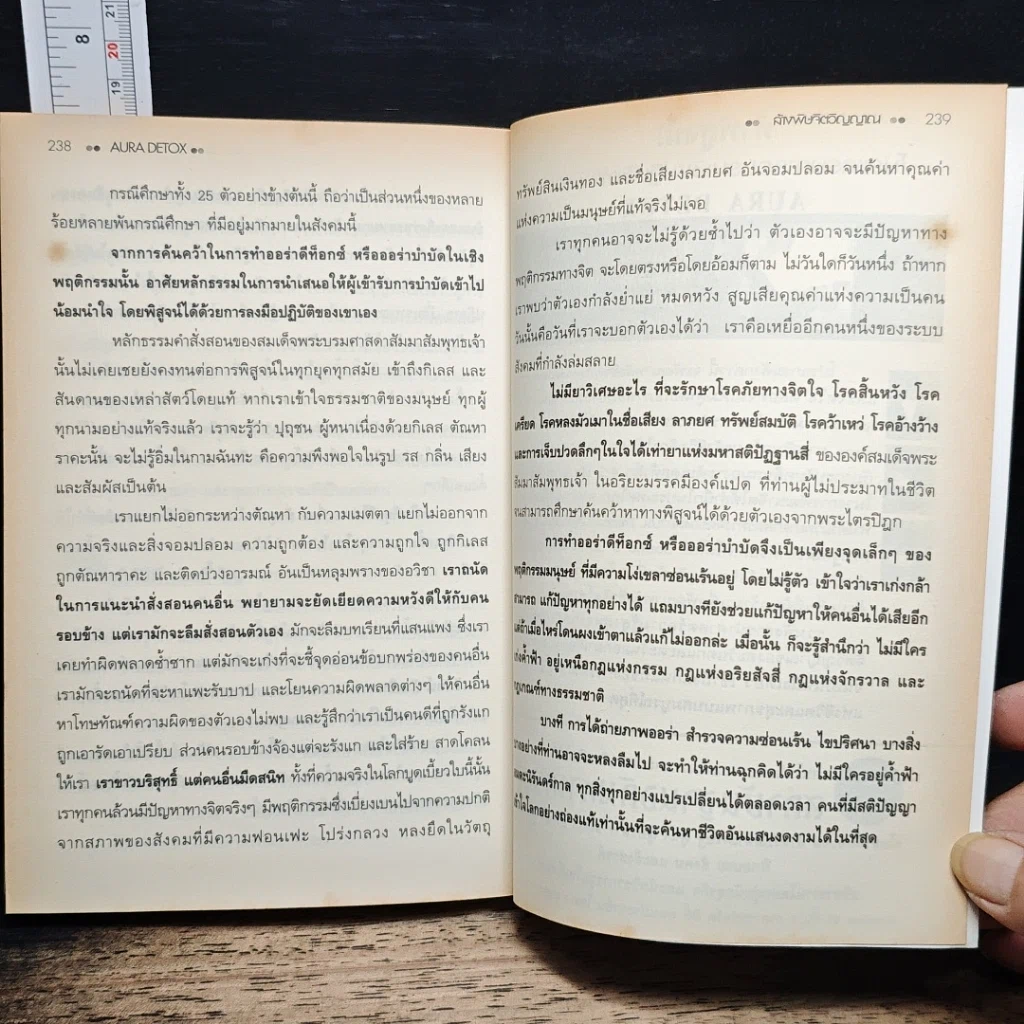 8
21
20
19
238 AURA DETOX
กรณีศึกษาทั้ง 25 ตัวอย่างข้างต้นนี้ ถือว่าเป็นส่วนหนึ่งของหลาย
ร้อยหลายพันกรณีศึกษา ที่มีอยู่มากมายในสังคมนี้
จากการค้นคว้าในการทำออร่าดีท็อกซ์ หรือออร่าบำบัดในเชิง
พฤติกรรมนั้น อาศัยหลักธรรมในการนำเสนอให้ผู้เข้ารับการบำบัดเข้าไป
น้อมนำใจ โดยพิสูจน์ได้ด้วยการลงมือปฏิบัติของเขาเอง
หลักธรรมคำสั่งสอนของสมเด็จพระบรมศาสดาสัมมาสัมพุทธเจ้า
นั้นไม่เคยเชยยังคงทนต่อการพิสูจน์ในทุกยุคทุกสมัย เข้าถึงกิเลส และ
สันดานของเหล่าสัตว์โดยแท้ หากเราเข้าใจธรรมชาติของมนุษย์ ทุกผู้
ทุกนามอย่างแท้จริงแล้ว เราจะรู้ว่า ปุถุชน ผู้หนาเนื่องด้วยกิเลส ตัณหา
ราคะนั้น จะไม่รู้อิ่มในกามฉันทะ คือความพึงพอใจในรูป รส กลิ่น เสียง
และสัมผัสเป็นต้น
เราแยกไม่ออกระหว่างตัณหา กับความเมตตา แยกไม่ออกจาก
ความจริงและสิ่งจอมปลอม ความถูกต้อง และความถูกใจ ถูกกิเลส
ถูกตัณหาราคะ และติดบ่วงอารมณ์ อันเป็นหลุมพรางของอวิชา เราถนัด
ในการแนะนำสั่งสอนคนอื่น พยายามจะยัดเยียดความหวังดีให้กับคน
รอบข้าง แต่เรามักจะลืมสั่งสอนตัวเอง มักจะลืมบทเรียนที่แสนแพง ซึ่งเรา
เคยทำผิดพลาดซ้ำซาก แต่มักจะเก่งที่จะชี้จุดอ่อนข้อบกพร่องของคนอื่น
เรามักจะถนัดที่จะหาแพะรับบาป และโยนความผิดพลาดต่างๆ ให้คนอื่น
หาโทษทัณฑ์ความผิดของตัวเองไม่พบ และรู้สึกว่าเราเป็นคนดีที่ถูกรังแก
ถูกเอารัดเอาเปรียบ ส่วนคนรอบข้างจ้องแต่จะรังแก และใส่ร้าย สาดโคลน
ให้เรา เราขาวบริสุทธิ์ แต่คนอื่นมืดสนิท ทั้งที่ความจริงในโลกบูดเบี้ยวใบนี้นั้น
เราทุกคนล้วนมีปัญหาทางจิตจริงๆ มีพฤติกรรมซึ่งเบี่ยงเบนไปจากความปกติ
จากสภาพของสังคมที่มีความฟอนเฟะ โปร่งกลวง หลงยึดในวัตถุ
ล้างพิษจิตวิญญาณ 239
ทรัพย์สินเงินทอง และชื่อเสียงลาภยศ อันจอมปลอม จนค้นหาคุณค่า
แห่งความเป็นมนุษย์ที่แท้จริงไม่เจอ
เราทุกคนอาจจะไม่รู้ด้วยซ้ำไปว่า ตัวเองอาจจะมีปัญหาทาง
พฤติกรรมทางจิต จะโดยตรงหรือโดยอ้อมก็ตาม ไม่วันใดก็วันหนึ่ง ถ้าหาก
เราพบว่าตัวเองกำลังย่ำแย่ หมดหวัง สูญเสียคุณค่าแห่งความเป็นคน
วันนั้นคือวันที่เราจะบอกตัวเองได้ว่า เราคือเหยื่ออีกคนหนึ่งของระบบ
สังคมที่กำลังล่มสลาย
ไม่มียาวิเศษอะไร ที่จะรักษาโรคภัยทางจิตใจ โรคสิ้นหวัง โรค
เครียด โรคหลงมัวเมาในชื่อเสียง ลาภยศ ทรัพย์สมบัติ โรคว้าเหว่ โรคอ้างว้าง
และการเจ็บปวดลึกๆในใจได้เท่ายาแห่งมหาสติปัฏฐานสี่ ขององค์สมเด็จพระ
สัมมาสัมพุทธเจ้า ในอริยะมรรคมีองค์แปด ที่ท่านผู้ไม่ประมาทในชีวิต
จนสามารถศึกษาค้นคว้าหาทางพิสูจน์ได้ด้วยตัวเองจากพระไตรปิฎก
การทำออร่าดีท็อกซ์ หรือออร่าบำบัดจึงเป็นเพียงจุดเล็กๆ ของ
พฤติกรรมมนุษย์ ที่มีความโง่เขลาซ่อนเร้นอยู่ โดยไม่รู้ตัว เข้าใจว่าเราเก่งกล้า
สามารถ แก้ปัญหาทุกอย่างได้ แถมบางทียังช่วยแก้ปัญหาให้คนอื่นได้เสียอีก
แต่ถ้าเมื่อไหร่โดนผงเข้าตาแล้วแก้ไม่ออกล่ะ เมื่อนั้น ก็จะรู้สำนึกว่า ไม่มีใคร
เก่งค้ำฟ้า อยู่เหนือกฎแห่งกรรม กฎแห่งอริยสัจสี่ กฎแห่งจักรวาล และ
กฎเกณฑ์ทางธรรมชาติ
บางที การได้ถ่ายภาพออร่า สำรวจความซ่อนเร้น ไขปริศนา บางสิ่ง
บางอย่างที่ท่านอาจจะหลงลืมไป จะทำให้ท่านฉุกคิดได้ว่า ไม่มีใครอยู่ค้ำฟ้า
และนิรันดร์กาล ทุกสิ่งทุกอย่างแปรเปลี่ยนได้ตลอดเวลา คนที่มีสติปัญญา
เข้าใจโลกอย่างถ่องแท้เท่านั้นที่จะค้นหาชีวิตอันแสนงดงามได้ในที่สุด